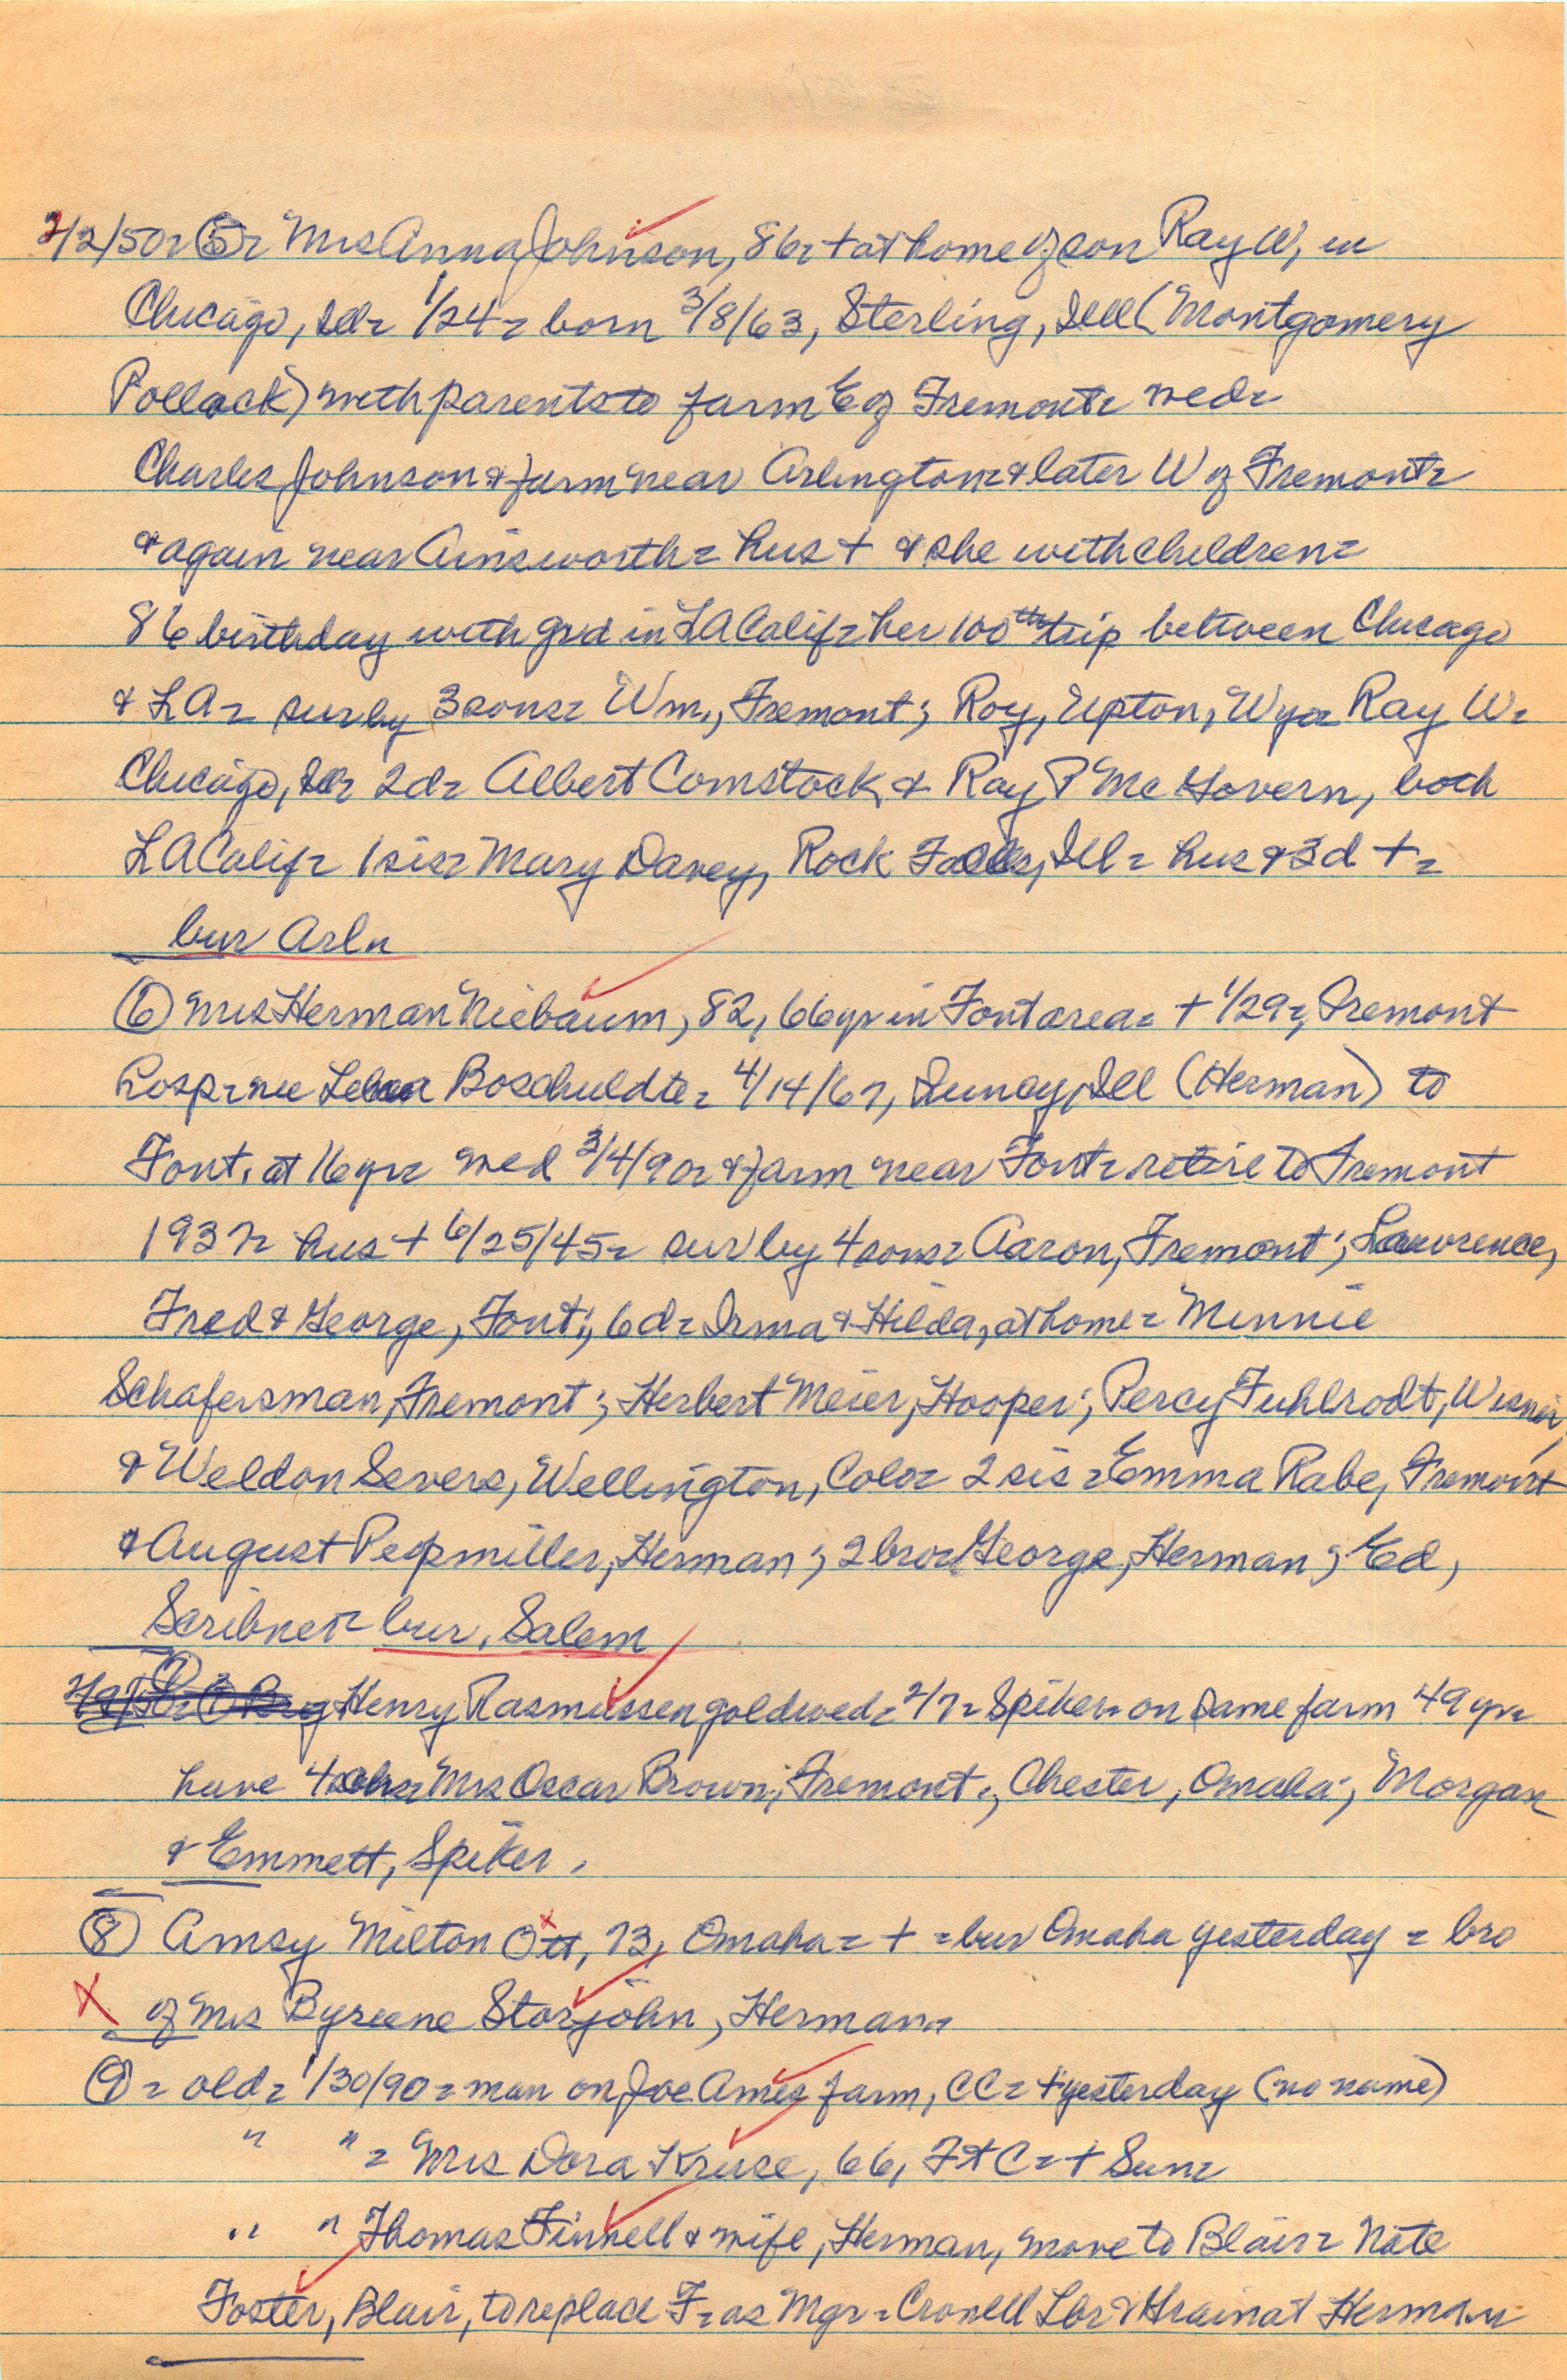 2/2/50= (5)= Mrs Anna Johnson, 86= + at home of son Ray W, in
Chicago, Ill= 1/24= born 3/8/63, Sterling, Ill (Montgomery
Pollock) with parents to farm E of Fremont= wed=
Charles Johnson & farm near Arlington= & later W of Fremont=
& again near Ainsworth= hus + & she with children=
86 birthday with grd in LA Calif= her 100th trip between Chicago
& LA= sur by 3 sons= Wm., Fremont; Roy, Upton, Wyo= Ray W=
Chicago, Ill= 2d= Albert Comstock, & Ray P McGovern, both
LA Calif= 1 sis= Mary Davey, Rock Falls, Ill= hus & 3d +=
bur Arln
(6) Mrs Herman Niebaum, 82, 66yr in Font area= + 1/29=, Fremont
hosp= nee Boschuldte= 4/14/67, Quncy, Ill (Herman) to
Font. at 16yr= wed 3/4/90= & farm near Font= retire to Fremont
1937= hus + 6/25/45= sur by 4 sons= Aaron, Fremont; Lawrence,
Fred & George, Font; 6d= Irma & Hilda, at home= Minnie
Schafersman, Fremont; Herbert Meier, Hooper; Percy Fuhlrodt, Wisner,
& Weldon Severs, Wellington, Colo= 2 sis= Emma Rabe, Fremont
& August Pepmiller, Herman; 2 bro= George, Herman; Ed,
Scribner= bur. Salem
(7) Henry Rasmussen gold wed= 2/7= Spiker= on same farm 49 yr=
have 4 Mrs Oscar Brown, Fremont; Chester, Omaha; Morgan
& Emmett, Spiker.
(8) Amsy Milton Ott, 73, Omaha= + =bur Omaha yesterday = bro
X of Mrs Byreene Storjohn, Herman
(9)= old= 1/30/90= man on Joe Ames farm, CC= + yesterday (no name)
" " = Mrs Dora Kruse, 66, Ft C= + Sun=
" " Thomas Finnell & wife, Herman, move to Blair= Nate
Foster, Blair, to replace F= as Mgr= Crowell Lbr & Grain at Herman